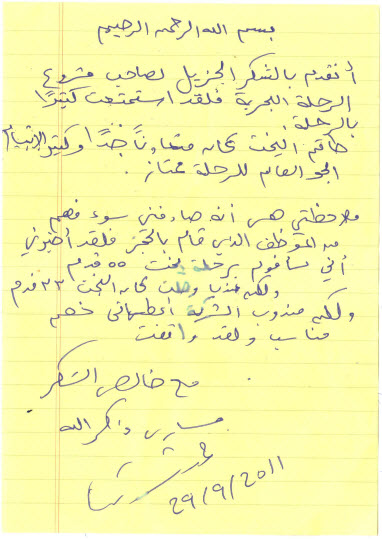 بسم الله الرحمن الرحيم
أتقدم بالشكر الجزيل لصاحب مشروع
الرحلة البحرية فلقد استمتعت كثيرًا
بالرحلة
طاقم اليخت كان متعاونًا جدًا وكثير الابتسام
الجو العام للرحلة ممتاز.
ملاحظتي هي أنه صادفني سوء فهم
من الموظف الذي قام بالحجز فلقد أخبرني
أني سأقوم برحلة يخت ٥٥ قدم
ولكن عندما وصلت كان اليخت ٣٣ قدم
ولكن مندوب الشركة أعطاني خصم
مناسب ولقد وافقت
مع خالص الشكر
ذكر الله
29/9/2011